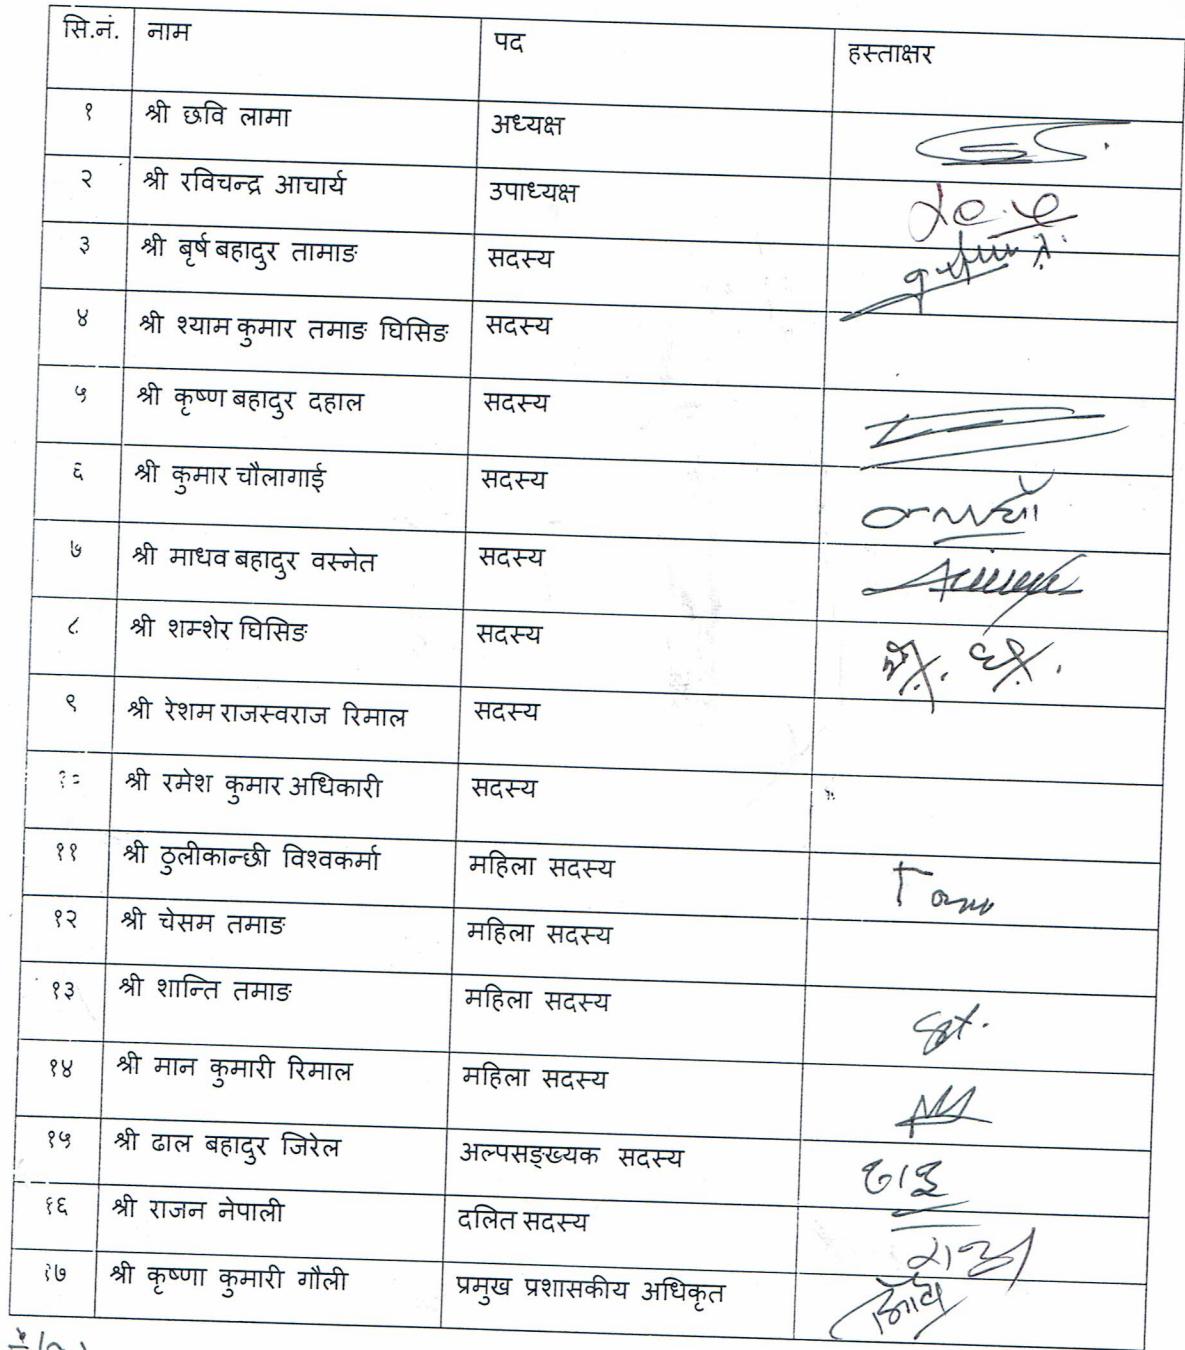 सि.नं. नाम पद हस्ताक्षर
१ श्री छवि लामा अध्यक्ष
२ श्री रविचन्द्र आचार्य उपाध्यक्ष
३ श्री बृर्ष बहादुर तामाङ सदस्य
४ श्री श्याम कुमार तमाङ घिसिङ सदस्य
५ श्री कृष्ण बहादुर दहाल सदस्य
६ श्री कुमार चौलागाई सदस्य
७ श्री माधव बहादुर वस्नेत सदस्य
८ श्री शम्शेर घिसिङ सदस्य
९ श्री रेशम राजस्वराज रिमाल सदस्य
१० श्री रमेश कुमार अधिकारी सदस्य
११ श्री ठुलीकान्छी विश्वकर्मा महिला सदस्य
१२ श्री चेसम तमाङ महिला सदस्य
१३ श्री शान्ति तमाङ महिला सदस्य
१४ श्री मान कुमारी रिमाल महिला सदस्य
१५ श्री ढाल बहादुर जिरेल अल्पसङ्ख्यक सदस्य
१६ श्री राजन नेपाली दलित सदस्य
१७ श्री कृष्णा कुमारी गौली प्रमुख प्रशासकीय अधिकृत